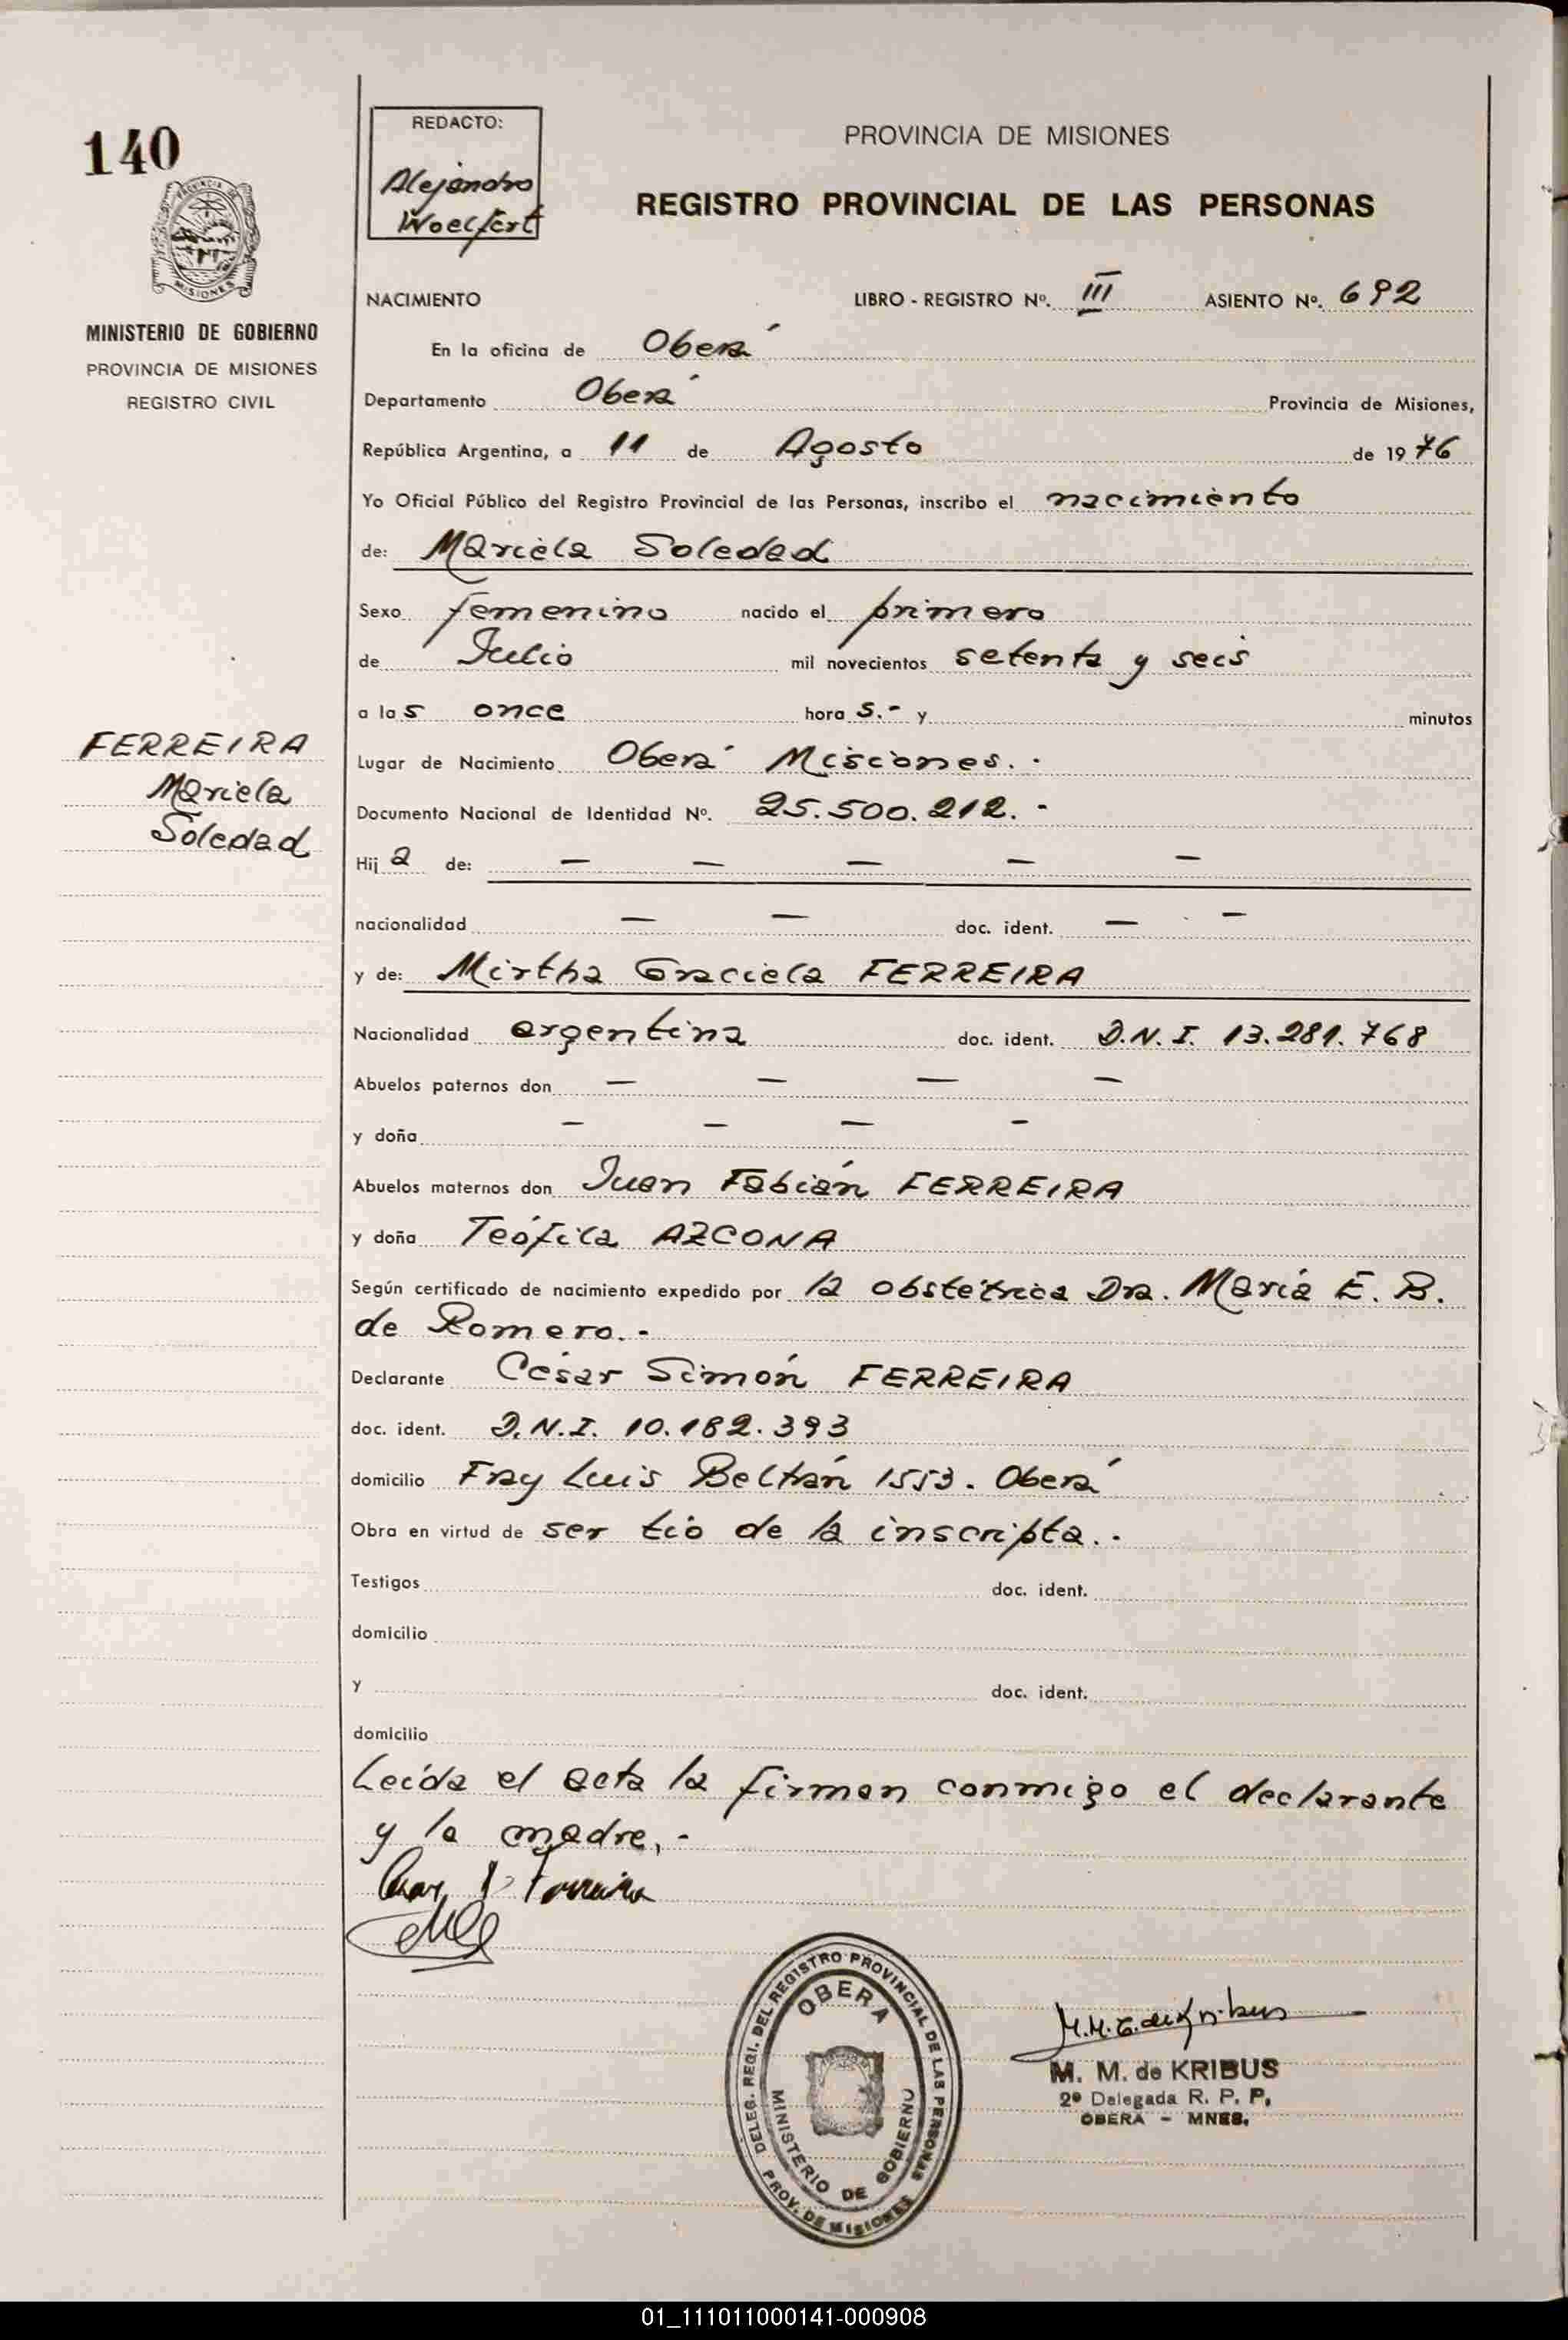 140
MINISTERIO DE GOBIERNO
PROVINCIA DE MISIONES
REGISTRO CIVIL
FERREIRA
Mariela
Soledad
REDACTO:
Alejandro
Woelfert
PROVINCIA DE MISIONES
REGISTRO PROVINCIAL DE LAS PERSONAS
NACIMIENTO LIBRO - REGISTRO Nº. III ASIENTO Nº. 692
En la oficina de Oberá
Departamento Oberá Provincia de Misiones,
República Argentina, a 11 de Agosto de 1976
Yo Oficial Público del Registro Provincial de las Personas, inscribo el nacimiento
de: Mariela Soledad
Sexo femenino nacido el primero
de Julio mil novecientos setenta y seis
a las once horas.- y minutos
Lugar de Nacimiento Oberá Misiones.-
Documento Nacional de Identidad Nº. 25.500.212.-
Hija de: — — — — —
nacionalidad — — doc. ident. — —
y de: Mirtha Graciela FERREIRA
Nacionalidad argentina doc. ident. D.N.I. 13.281.768
Abuelos paternos don — — — —
y doña — — — —
Abuelos maternos don Juan Fabián FERREIRA
y doña Teófila AZCONA
Según certificado de nacimiento expedido por la obstétrica Dra. María E. B.
de Romero.-
Declarante César Simón FERREIRA
doc. ident. D.N.I. 10.182.393
domicilio Fray Luis Beltrán 1553. Oberá
Obra en virtud de ser tío de la inscripta.-
Testigos doc. ident.
domicilio
y doc. ident.
domicilio
Leída el acta la firman conmigo el declarante
y la madre.-
Ferreira
DELEG. REGI. DEL REGISTRO PROVINCIAL DE LAS PERSONAS
OBERA
MINISTERIO DE GOBIERNO
PROV. DE MISIONES
M. M. de KRIBUS
2º Delegada R. P. P.
OBERA - MNES.
01_111011000141-000908